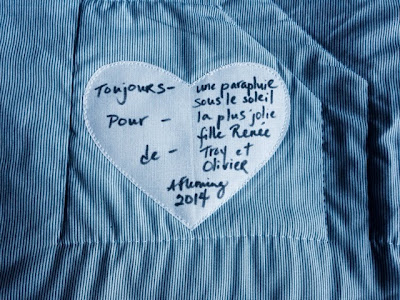 Toujours - une parapluie
sous le soleil
Pour - la plus jolie
fille Renée
de - Troy et
Olivier
AFleming
2014